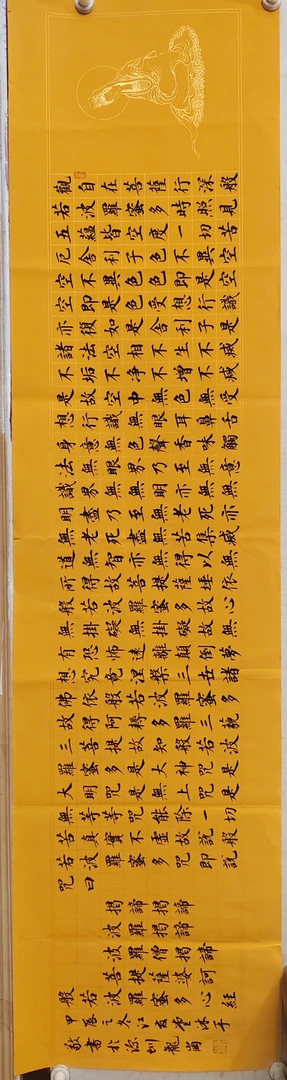 觀自在菩薩行深般
若波羅蜜多時照見
五蘊皆空度一切苦
厄舍利子色不異空
空不異色色即是空
空即是色受想行識
亦復如是舍利子是
諸法空相不生不滅
不垢不淨不增不減
是故空中無色無受
想行識無眼耳鼻舌
身意無色聲香味觸
法無眼界乃至無意
識界無無明亦無無
明盡乃至無老死亦
無老死盡無苦集滅
道無智亦無得以無
所得故菩提薩埵依
般若波羅蜜多故心
無掛礙無掛礙故無
有恐怖遠離顛倒夢
想究竟涅槃三世諸
佛依般若波羅蜜多
故得阿耨多羅三藐
三菩提故知般若波
羅蜜多是大神咒是
大明咒是無上咒是
無等等咒能除一切
苦真實不虛故說般
若波羅蜜多咒即說
咒曰
揭諦揭諦
波羅揭諦
波羅僧揭諦
菩提薩婆訶
般若波羅蜜多心經
甲辰之冬江堂沐手
敬書於深圳龍崗